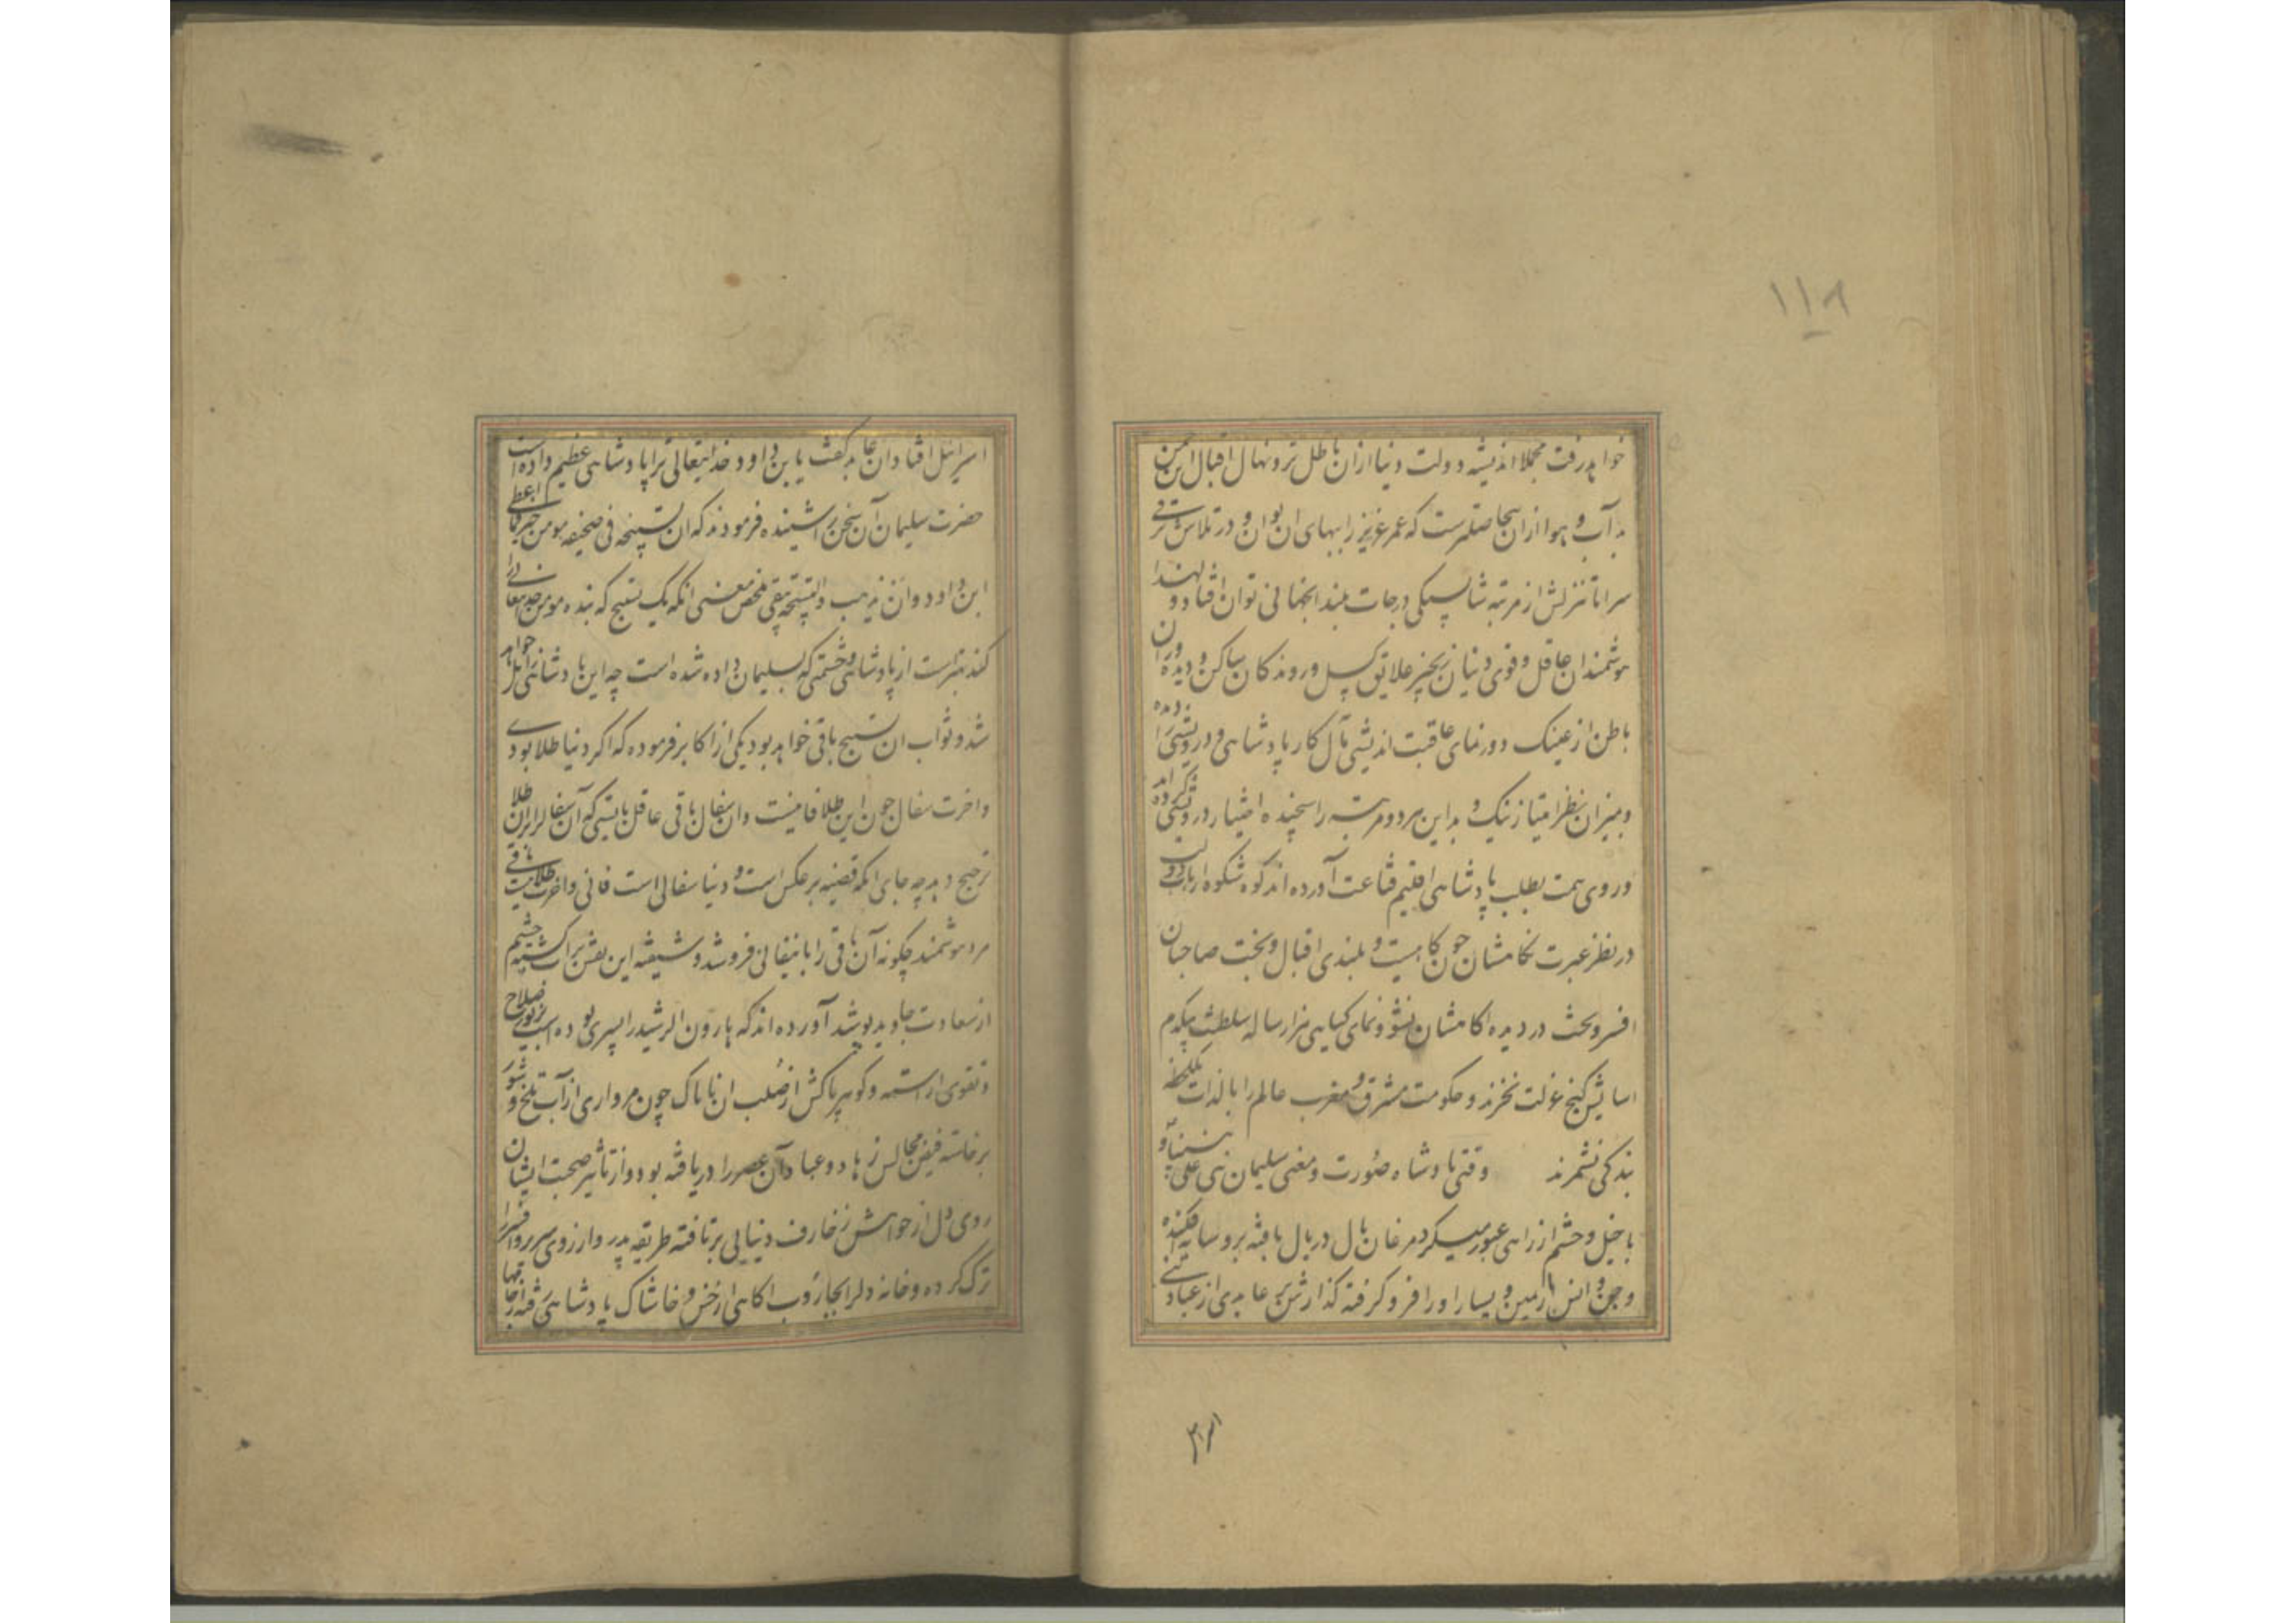 ۱۱۸
خواهد رفت مجملا اندیشه دولت دنیا ازان باطل تر و نهال اقبال این چمن
بی آب و هوا ازان بیحاصلترست که عمر عزیز را ببهای ان توان و در تلاش ترقی
سراپا تنزلش از مرتبه شایستگی درجات بلند انجهانی توان افتاد و لهذا
هوشمندان عاقل و قوی دنیا زنجیر علایق کسل و روندکان ساکن و دیده وران
باطن از عینک دورنمای عاقبت اندیشی مآل کار پادشاهی و درویشی را دیده
و بمیزان نظر امتیاز نیک و بد این هر دو مرتبه را سنجیده اختیار درویشی کرده اند
و روی همت بطلب پادشاهی اقلیم قناعت آورده اند کوه شکوه ارباب دولت
در نظر عبرت نکاهشان چون کاهیست و بلندی اقبال و بخت صاحبان
افسر و تخت در دیده اکاهشان نشو و نمای کیاهی هزار ساله سلطنت بیکدم
اسایش کنج عزلت نخرند و حکومت مشرق و مغرب عالم را با لذات یکلحظه
بندکی نشمرند وقتی پادشاه صورت و معنی سلیمان نبی علی نبینا و
با خیل و حشم از راهی عبور میکرد مرغان بال در بال بافته برو سایه افکنده
و جن و انس از یمین و یسار او را فرو کرفته کذارش بر عابدی از عباد بنی
اسرائیل
اسرائیل افتاد ان عابد کفت یا بن داود خدایتعالی ترا پادشاهی عظیم داده است
حضرت سلیمان آن سخن را شنیده فرمودند که ان تسبیحه فی صحیفه مومن خیر مما اعطی
ابن داود و ان یذهب و التسبیحه تبقی ملخص معنی انکه یک تسبیح که بنده مومن خدیتعالی را
کند بهتر است از پادشاهی و حشمتی که بسلیمان داده شده است چه این پادشاهی زایل خواهد
شد و ثواب ان تسبیح باقی خواهد بود یکی از اکابر فرموده که اکر دنیا طلا بودی
و اخرت سفال چون این طلا فانیست و ان سفال باقی عاقل بایستی که آن سفال را بر ان طلا
ترجیح دهد چه جای انکه قضیه بر عکس است و دنیا سفالی است فانی و اخرت طلائیست باقی
مرد هوشمند چکونه آن باقی را باین فانی فروشد و شیفته این نقش بر آب کشته چشم
از سعادت جاوید پوشد آورده اند که هارون الرشید را پسری بوده است بزیور صلاح
و تقوی اراسته و کوهر پاکش از صلب ان ناپاک چون مرواری از آب تلخ و شور
برخاسته فیض مجالس زهاد و عباد آن عصر را دریافته بود و از تاثیر صحبت ایشان
روی دل از خواهش زخارف دنیایی برتافته طریقه پدر و ارزوی سریر و افسر را
ترک کرده و خانه دلرا بجاروب اکاهی از خس و خاشاک پادشاهی رفته